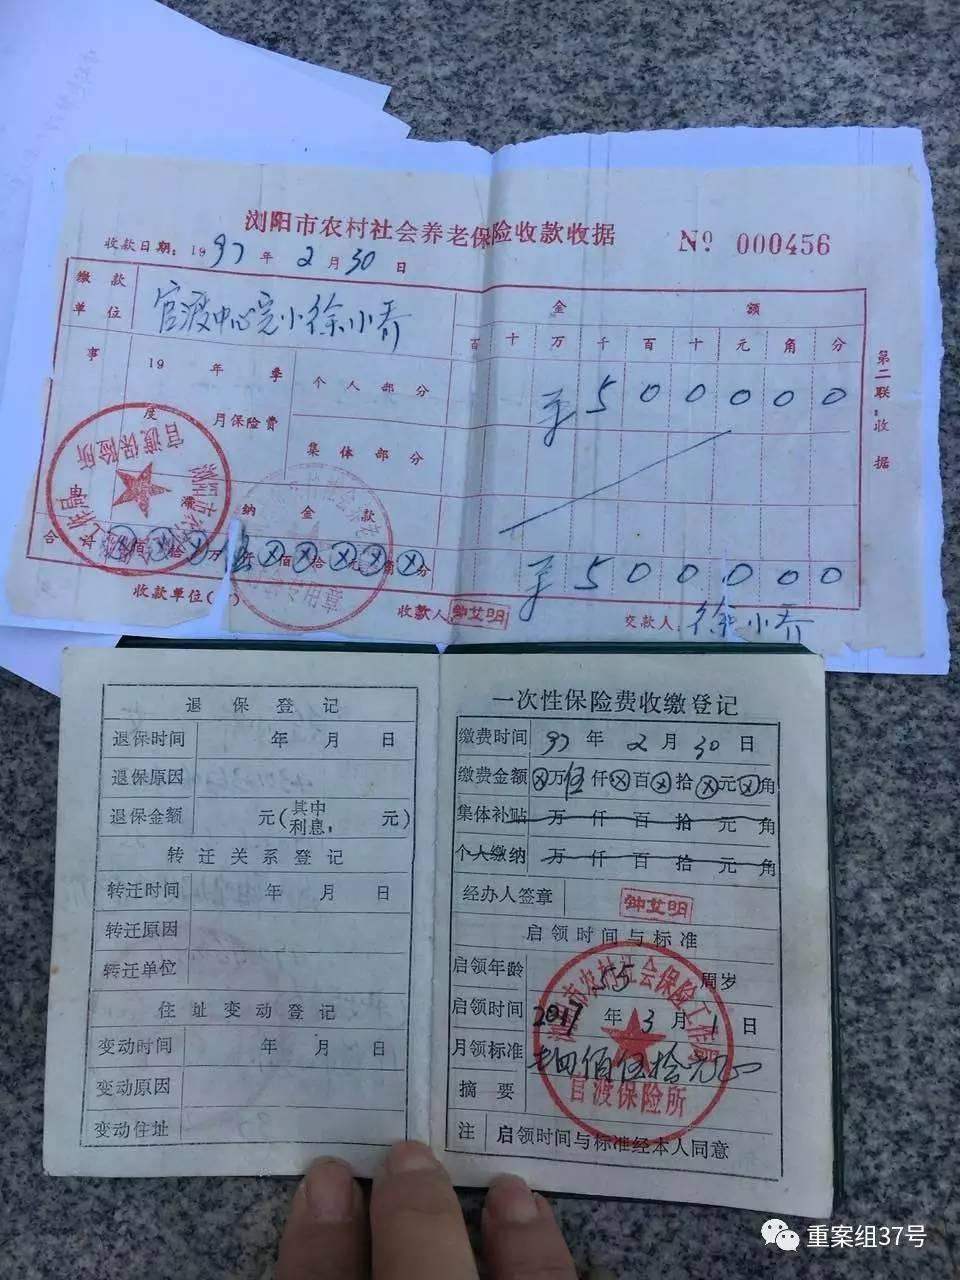 浏阳市农村社会养老保险收款收据
№ 000456
收款日期：1997年2月30日
缴款单位 官渡中心完小徐小乔
金额
百十万千百十元角分
事
19 年 季度
月保险费
个人部分 5000000
集体部分
纳金款
合计 ⊗佰⊗拾⊗万伍仟⊗佰⊗拾⊗元⊗角⊗分 5000000
第二联：收据
收款单位(
收款人 钟艾明
交款人 徐小乔
官渡保险所
退保登记
退保时间 年 月 日
退保原因
退保金额 元(其中利息： 元)
转迁关系登记
转迁时间 年 月 日
转迁原因
转迁单位
住址变动登记
变动时间 年 月 日
变动原因
变动住址
一次性保险费收缴登记
缴费时间 97年2月30日
缴费金额 ⊗万伍仟⊗百⊗拾⊗元⊗角
集体补贴 万仟百拾元角
个人缴纳 万仟百拾元角
经办人签章 钟艾明
启领时间与标准
启领年龄 55 周岁
启领时间 2017年3月1日
月领标准 佰伍拾元
摘要
官渡保险所
注 启领时间与标准经本人同意
重案组37号